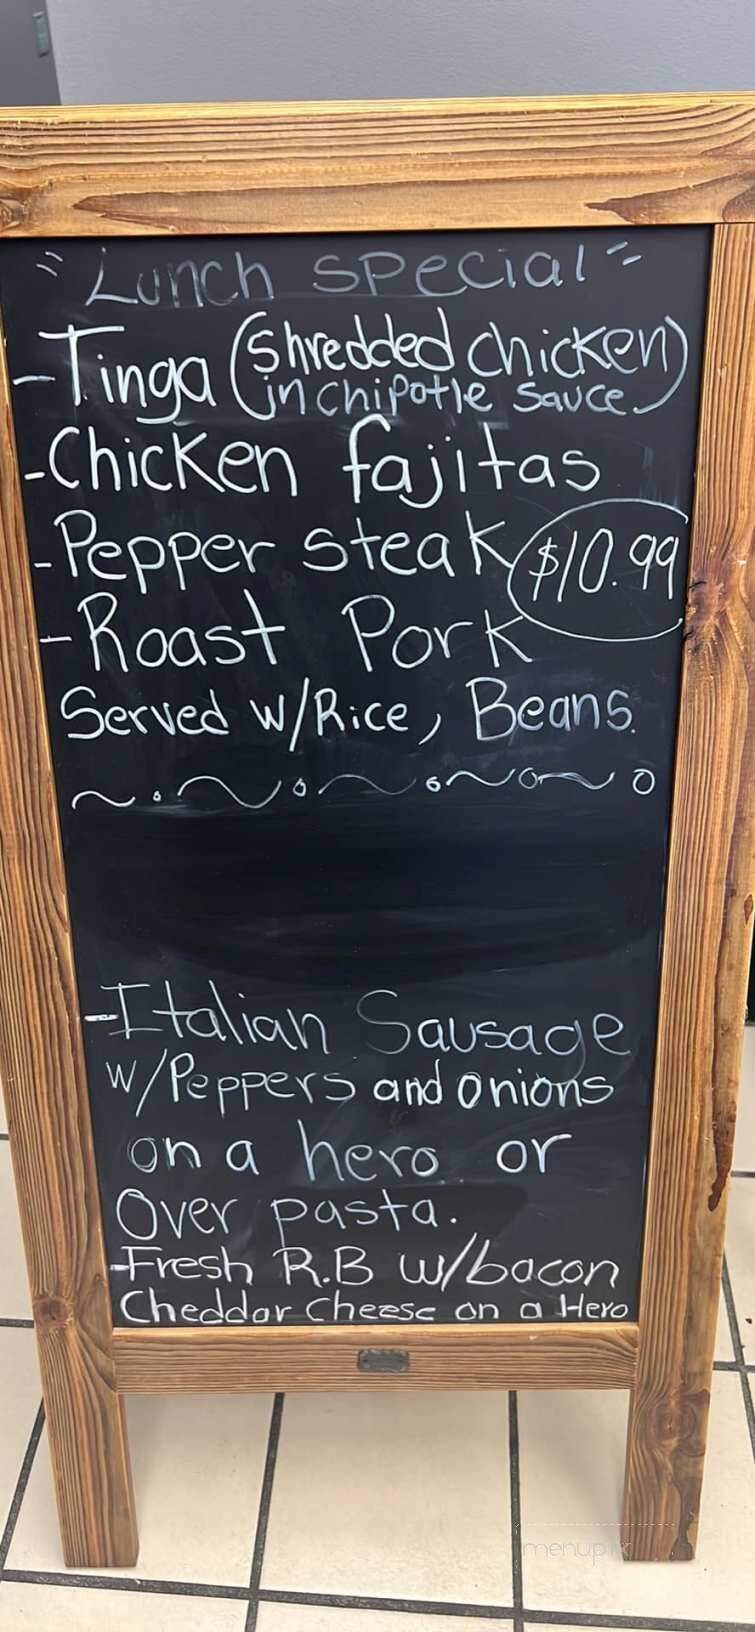 "Lunch special"
-Tinga (shredded chicken
in chipotle sauce)
-Chicken fajitas
-Pepper steak $10.99
-Roast Pork
Served w/Rice, Beans.
-Italian Sausage
w/Peppers and onions
on a hero or
Over pasta.
-Fresh R.B w/bacon
Cheddar Cheese on a Hero